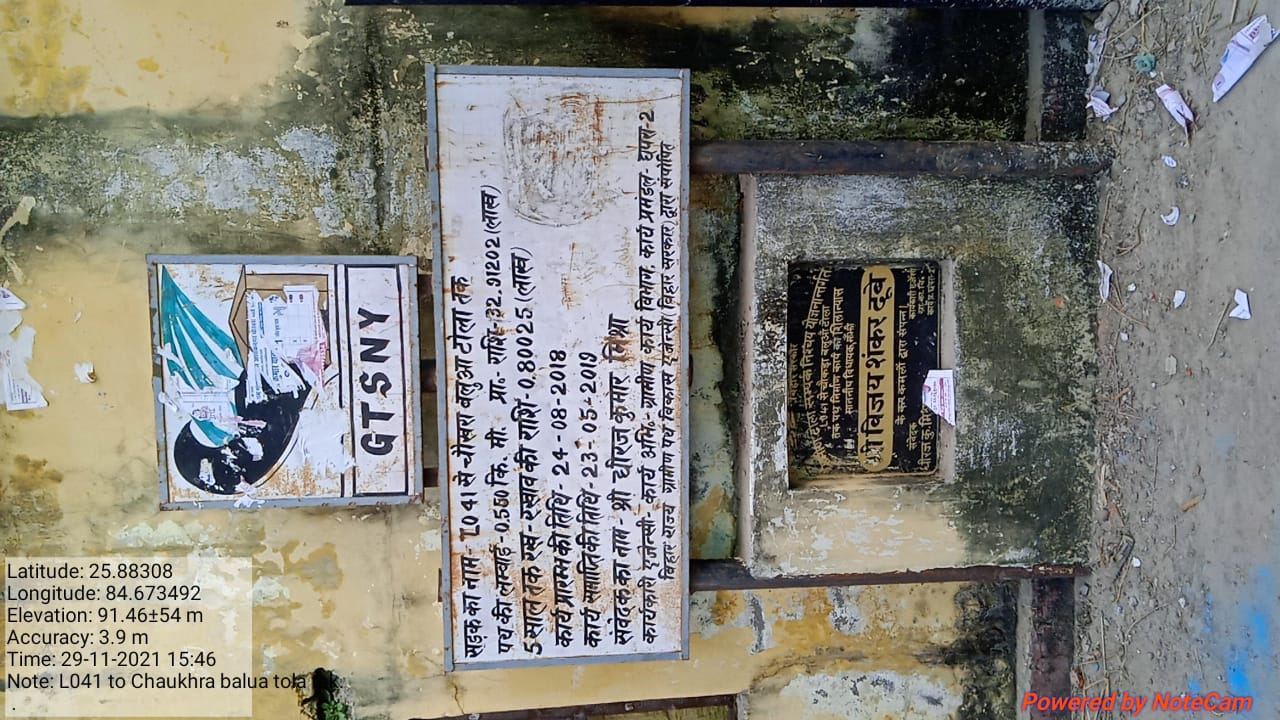 GTSNY
सड़क का नाम- L041 से चौखरा बलुआ टोला तक
पथ की लम्बाई- 0.550 कि. मी. प्रा.- राशि- 32.91202 (लाख)
5 साल तक रख-रखाव की राशि- 0.80025 (लाख)
कार्य प्रारम्भ की तिथि- 24-08-2018
कार्य समाप्ति की तिथि- 23-05-2019
संवेदक का नाम- श्री धीरज कुमार मिश्रा
कार्यकारी एजेन्सी- कार्य अभि.- ग्रामीण कार्य विभाग, कार्य प्रमंडल- छपरा-2
बिहार राज्य ग्रामीण पथ विकास एजेन्सी (बिहार सरकार) द्वारा संपोषित
निश्चय योजनान्तर्गत
L041 से बलुआ टोला
तक पथ निर्माण कार्य का शिलान्यास
माननीय विधायक, माँझी
श्री विजय शंकर दूबे
के कर कमलों द्वारा संपन्न।
संवेदक
धीरज कु.
Latitude: 25.88308
Longitude: 84.673492
Elevation: 91.46±54 m
Accuracy: 3.9 m
Time: 29-11-2021 15:46
Note: L041 to Chaukhra balua tola
.
Powered by NoteCam